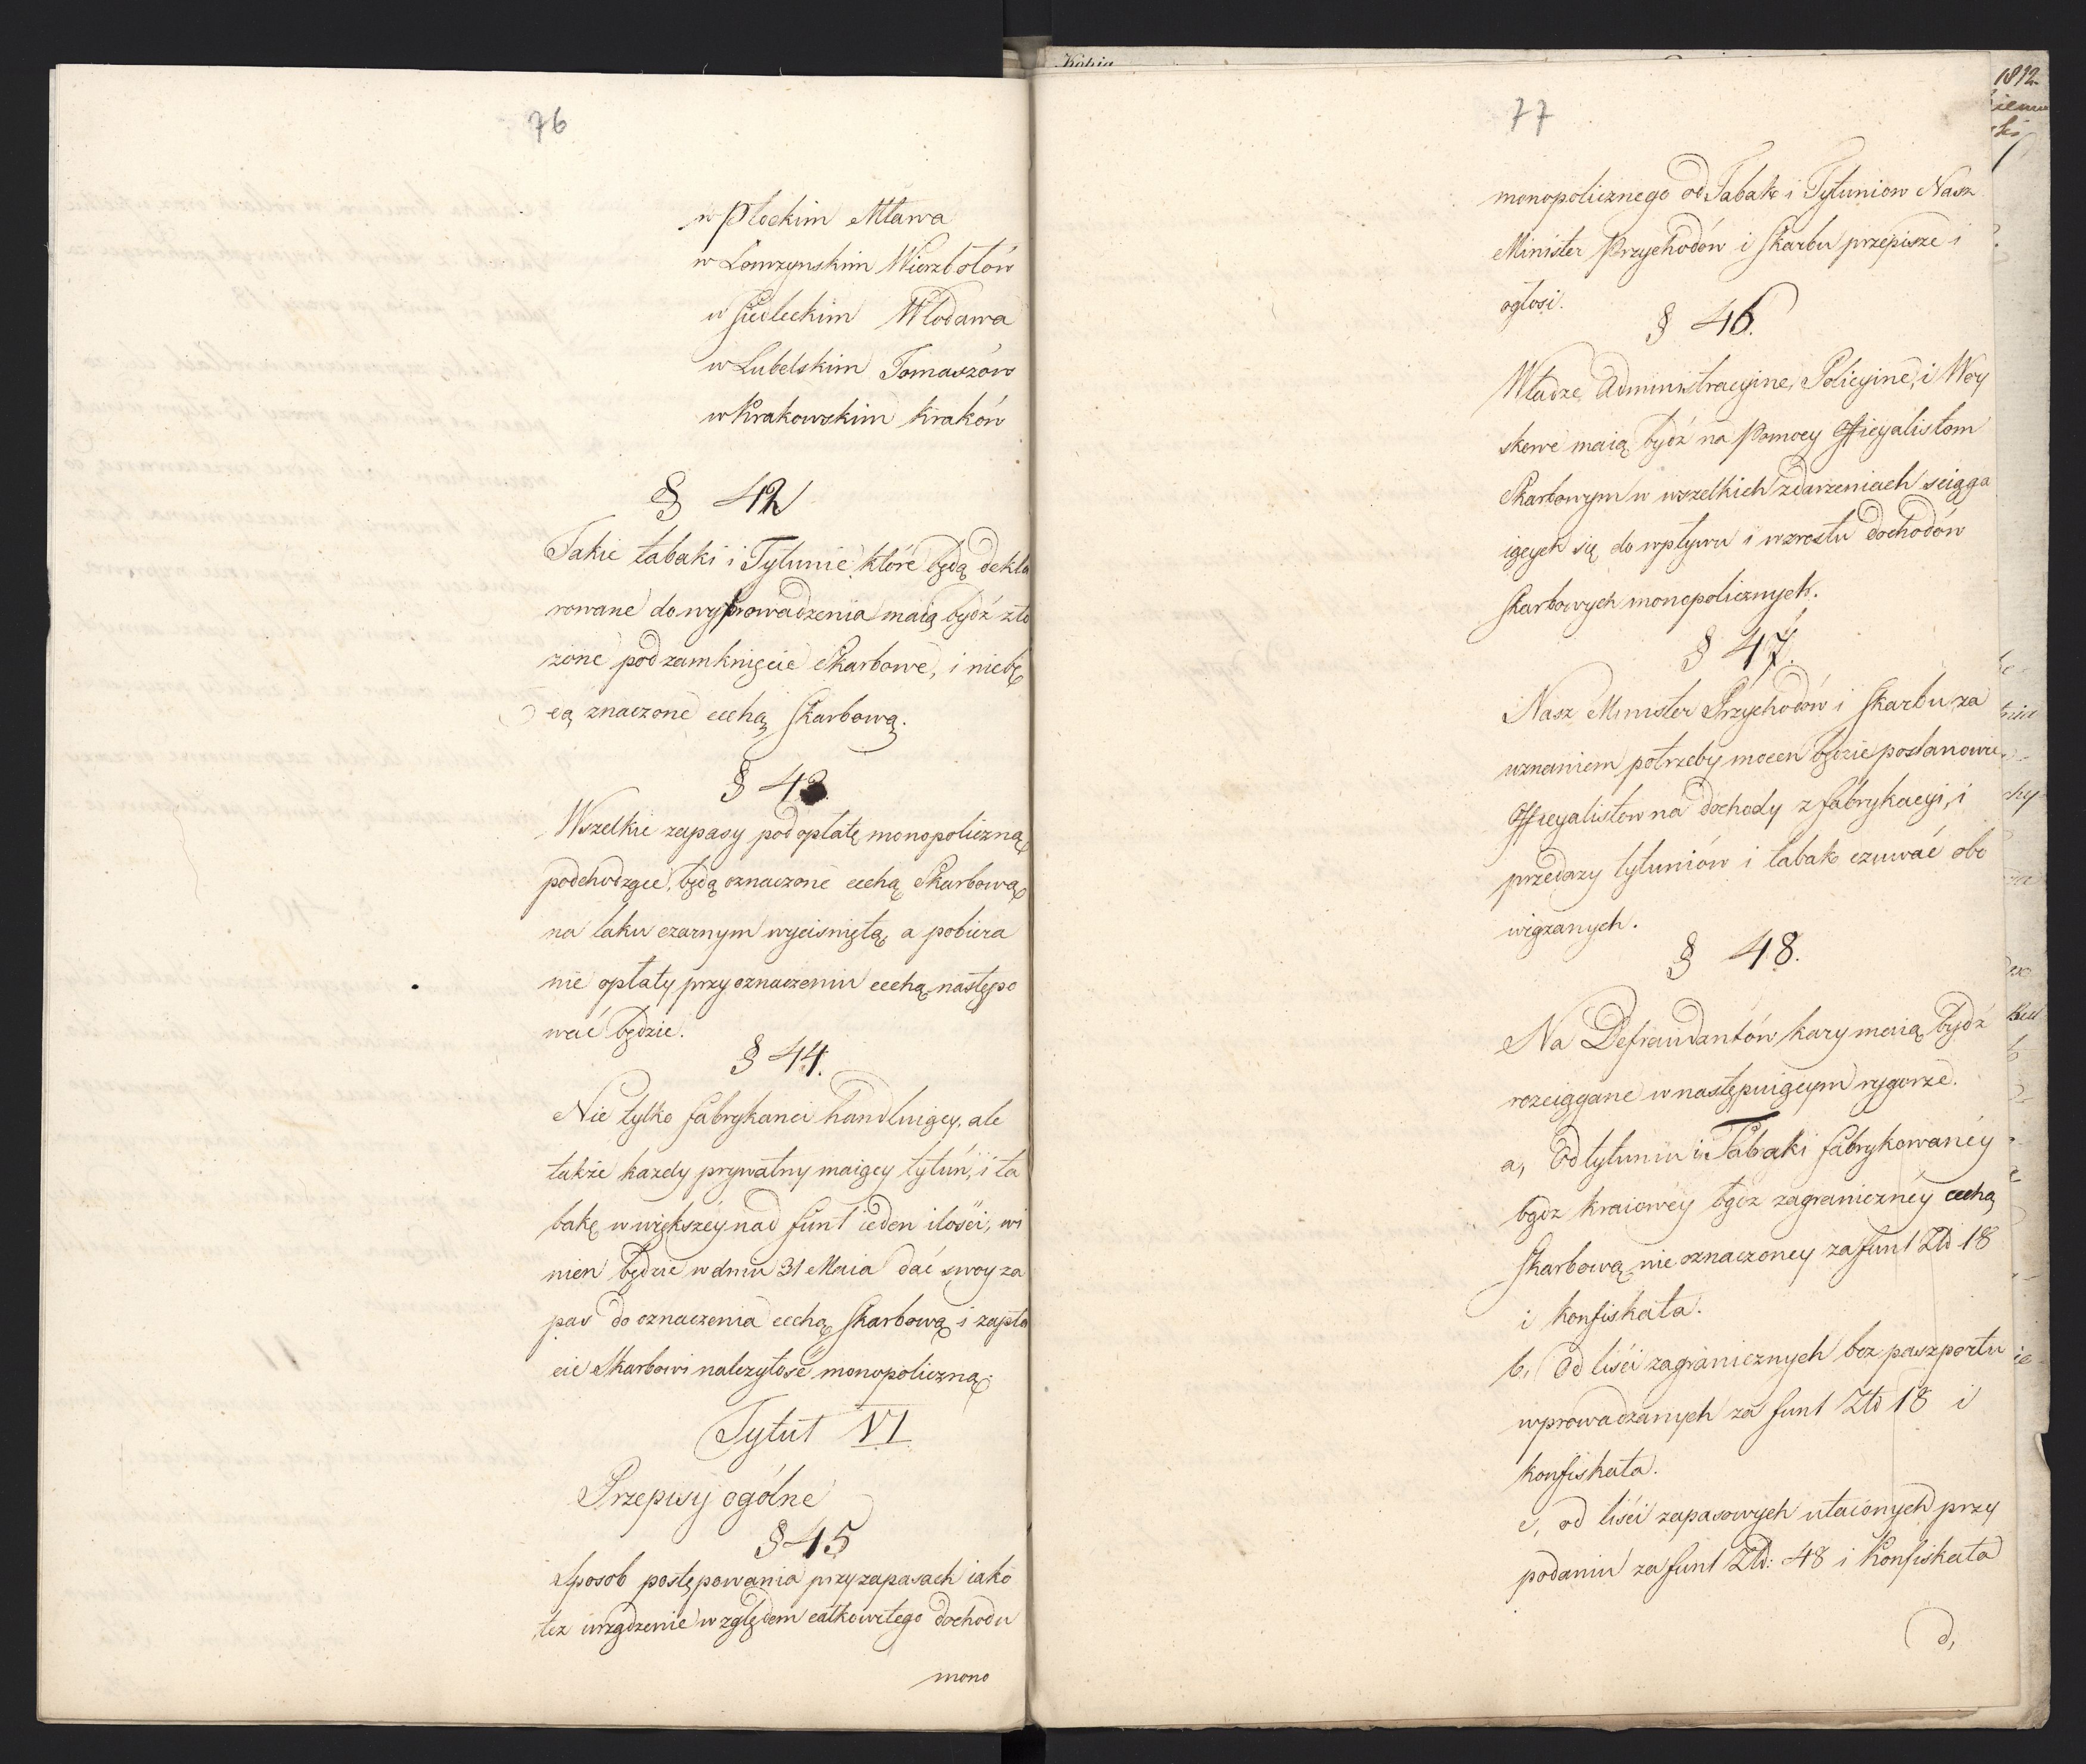 76
w Płockim Mława
w Łomzynskim Wierzbołów
w Siedleckim Włodawa
w Lubelskim Tomaszów
w Krakowskim Kraków
§ 42
Takie tabaki i Tytunie które będą dekla
rowane do wyprowadzenia maią bydź zło
zone pod zamknięcie Skarbowe, i niebę
dą znaczone cechą Skarbową.
§ 43.
Wszelkie zapasy pod opłatę monopoliczną
podchodzące, będą oznaczone cechą Skarbową
na laku czarnym wyciśniętą, a pobiera
nie opłaty przy oznaczeniu cechą następo
wać będzie.
§ 44.
Nie tylko fabrykanci handluiący, ale
także kazdy prywatny maiący tytuń, i ta
bakę w większéy nad funt ieden ilości, wi
nien będzie w dniu 31 Maia dać swoy za
pas do oznaczenia cechą Skarbową i zapła
cić Skarbowi nalezytość monopoliczną.
Tytuł VI
Przepisy ogólne
§ 45
Sposob postępowania przy zapasach iako
tez urządzenie względem całkowitego dochodu
mono
77
monopolicznego od Tabak i Tytuniow Nasz
Minister Przychodów i Skarbu przepisze i
ogłosi.
§ 46.
Władze Administracyine, Policyine, i Woy
skowe maią bydź na Pomocy Officyalistom
Skarbowym w wszelkich zdarzeniach sciąga
iących się do wpływu i wzrostu dochodów
Skarbowych monopolicznych.
§ 47.
Nasz Minister Przychodów i Skarbu za
uznaniem potrzeby mocen będzie postanowić
Officyalistow na dochody z fabrykacyi, i
przedazy tytuniów i tabak czuwać obo
wiązanych.
§ 48.
Na Defraudantów kary maią bydź
rozciągane w następuiącym rygorze.
a, Od tytuniu i Tabaki fabrykowanéy
bądz kraiowéy bądz zagranicznéy cechą
Skarbową nie oznaczoney za funt Złd 18
i konfiskata.
b, Od liści zagranicznych bez paszportu
wprowadzanych za funt Złd 18 i
konfiskata.
c, od liści zapasowych utaionych przy
podaniu za funt Złd: 48 i Konfiskata
d,
1812.